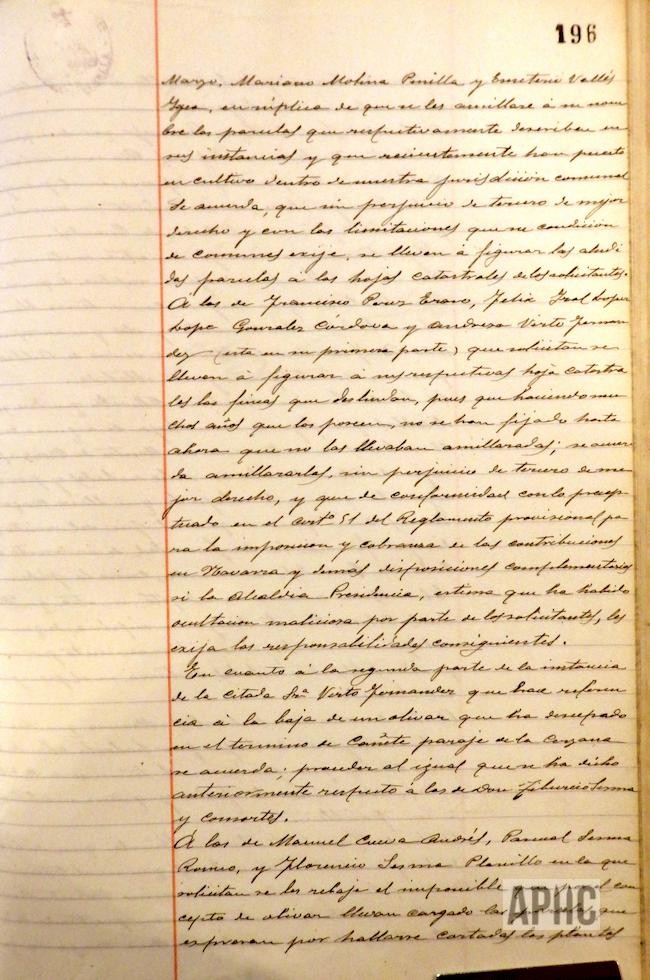 196
Marzo, Mariano Molina Pinilla y Emeterio Vallés
Igea, en súplica de que se les amillare á su nom
bre las parcelas que respectivamente describen en
sus instancias y que recientemente han puesto
en cultivo dentro de nuestra jurisdición comunal
se acuerda, que sin perjuicio de tercero de mejor
derecho y con las limitaciones que su condición
de comunes exije, se lleven á figurar las aludi
das parcelas á las hojas catastrales de los solicitantes.
A las de Francisco Perez Eraso, Felix Gral Lopez
Lope Gonzalez Córdova y Andresa Virto Fernan
dez (esta en su primera parte) que solicitan se
lleven á figurar á sus respectivas hoja catastra
les las fincas que deslindan, pues que haciendo mu
chos años que las poseen, no se han fijado hasta
ahora que no las llevaban amillaradas; se acuer
da amillararlas, sin perjuicio de tercero de me
jor derecho, y que de conformidad con lo precep
tuado en el artº 51 del Reglamento provisional pa
ra la imposicion y cobranza de las contribuciones
en Navarra y demás disposiciones complementarias
si la Alcaldia Presidencia, estima que ha habido
ocultacion maliciosa por parte de los solicitantes, les
exija las responsabilidades consiguientes.
En cuanto á la segunda parte de la instancia
de la citada Srª Virto Fernandez que hace referen
cia á la baja de un olivar que ha descepado
en el termino de Cañete paraje de la
se acuerda; proceder al igual que se ha dicho
anteriormente respecto á las de Don Tiburcio Sesma
y consortes.
A las de Manuel Cueva Andrés, Pascual Sesma
Romeo, y Florencio Sesma Planillo en la que
solicitan se les rebaje el imponible que por el con
cepto de olivar llevan cargado las parcelas que
expresan por hallarse cortadas las plantas
APHC